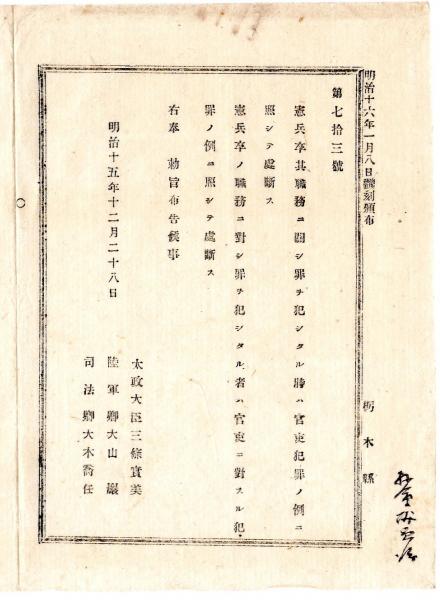 明治十六年一月八日飜刻頒布
栃木縣
第七拾三號
憲兵卒其職務ニ關シ罪ヲ犯シタル時ハ官吏犯罪ノ例ニ
照シテ處斷ス
憲兵卒ノ職務ニ對シ罪ヲ犯シタル者ハ官吏ニ對スル犯
罪ノ例ニ照シテ處斷ス
右奉 勅旨布告候事
明治十五年十二月二十八日
太政大臣三條實美
陸軍卿大山巖
司法卿大木喬任